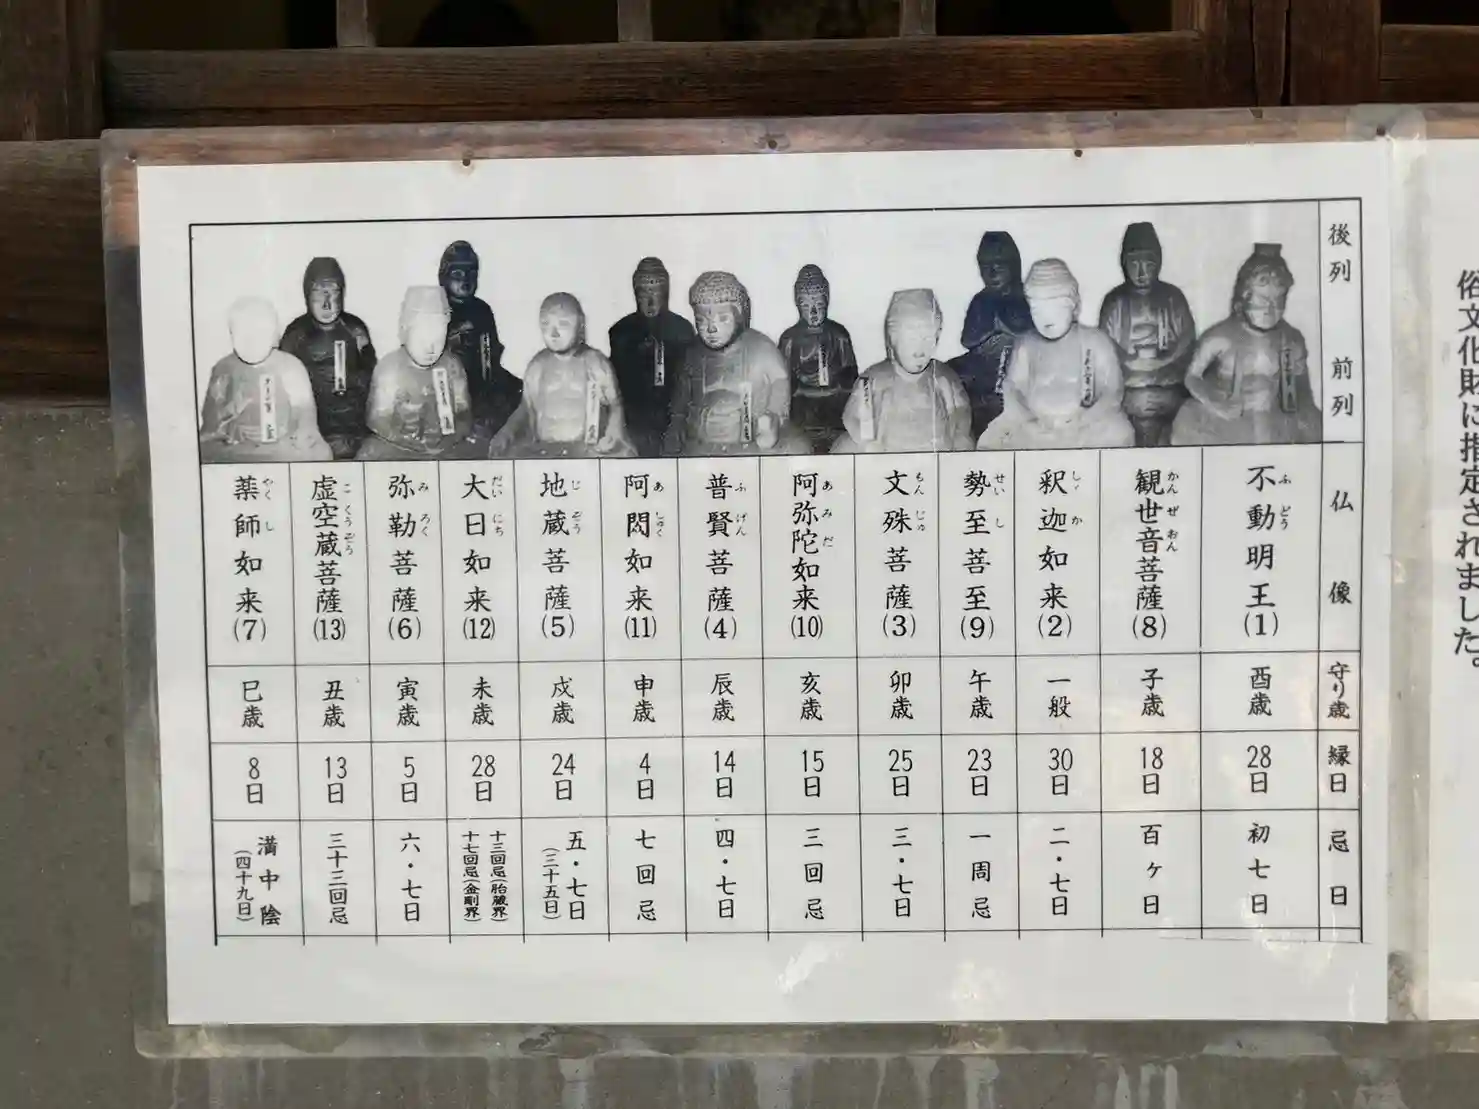 後列
前列
仏像
守り歳
縁日
忌日
不動明王(1)
ふどう
酉歳
28日
初七日
観世音菩薩(8)
かんぜおん
子歳
18日
百ヶ日
釈迦如来(2)
しゃか
一般
30日
二・七日
勢至菩至(9)
せいし
午歳
23日
一周忌
文殊菩薩(3)
もんじゅ
卯歳
25日
三・七日
阿弥陀如来(10)
あみだ
亥歳
15日
三回忌
普賢菩薩(4)
ふげん
辰歳
14日
四・七日
阿閦如来(11)
あしゅく
申歳
4日
七回忌
地蔵菩薩(5)
じぞう
戌歳
24日
五・七日
(三十五日)
大日如来(12)
だいにち
未歳
28日
十三回忌(胎蔵界)
十七回忌(金剛界)
弥勒菩薩(6)
みろく
寅歳
5日
六・七日
虚空蔵菩薩(13)
こくうぞう
丑歳
13日
三十三回忌
薬師如来(7)
やくし
巳歳
8日
満中陰
(四十九日)
俗文化財に指定されました。